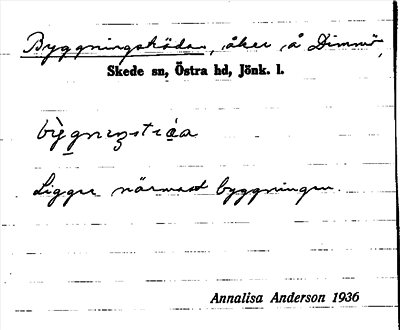 Byggningsträdan, åker å Dimmö,
Skede sn, Östra hd, Jönk. l.
Ligger närmast byggningen.
Annalisa Anderson 1936